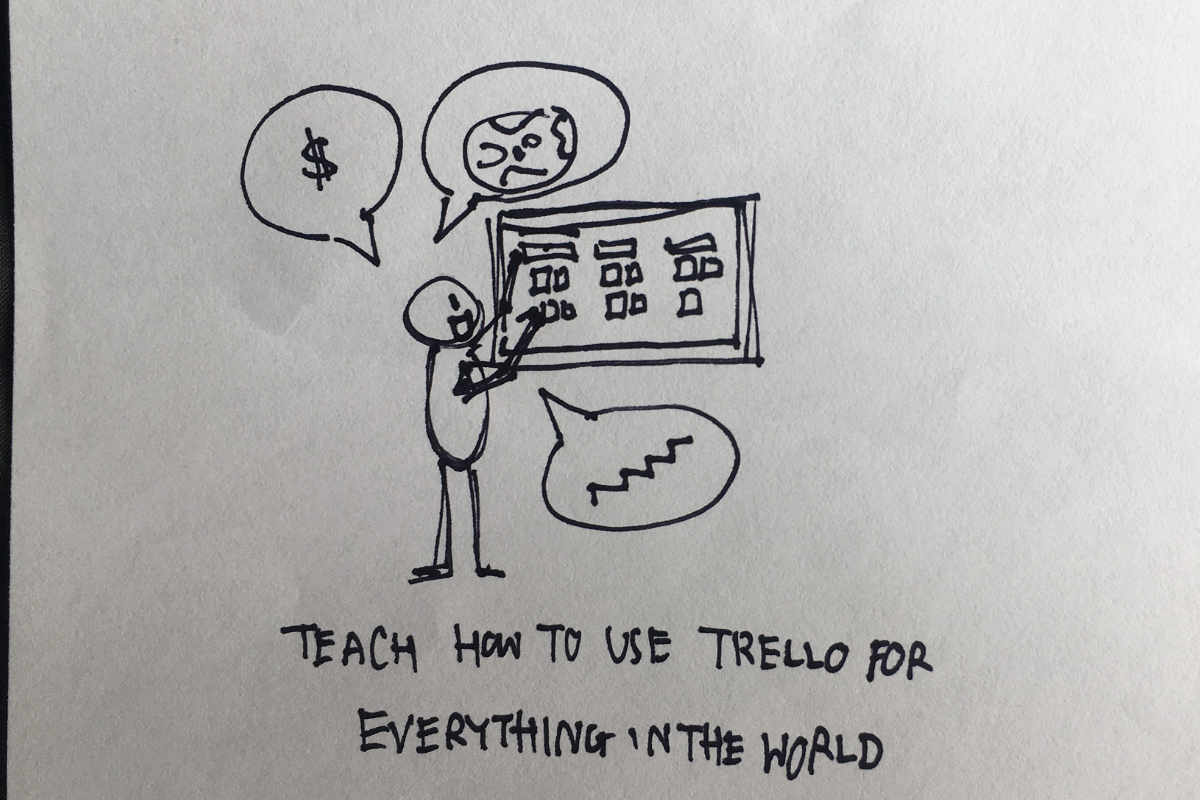 $
TEACH HOW TO USE TRELLO FOR
EVERYTHING IN THE WORLD